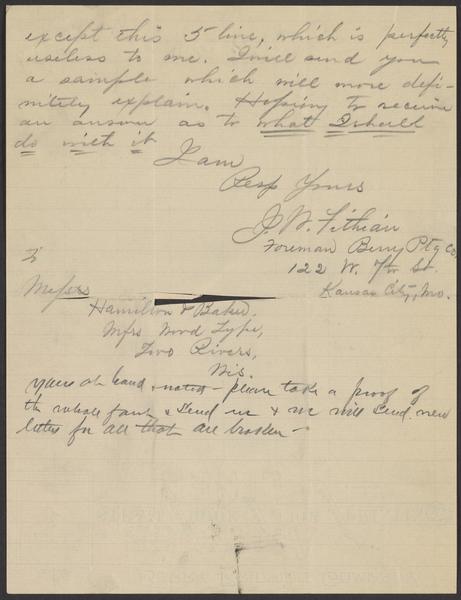 except this 5 line, which is perfectly
useless to me. I will send you
a sample which will more defi-
nitely explain. Hoping to receive
an answer as to what I shall
do with it
I am
Resp Yours
J. W. Fithian
Foreman Berry Ptg Co.
122 W. 7th St.
Kansas City, Mo.
To
Messrs
Hamilton & Baker.
Mfrs Wood Type,
Two Rivers,
Wis.
yours at hand & noted - please take a proof of
the whole font & send us & we will send new
letters for all that are broken -